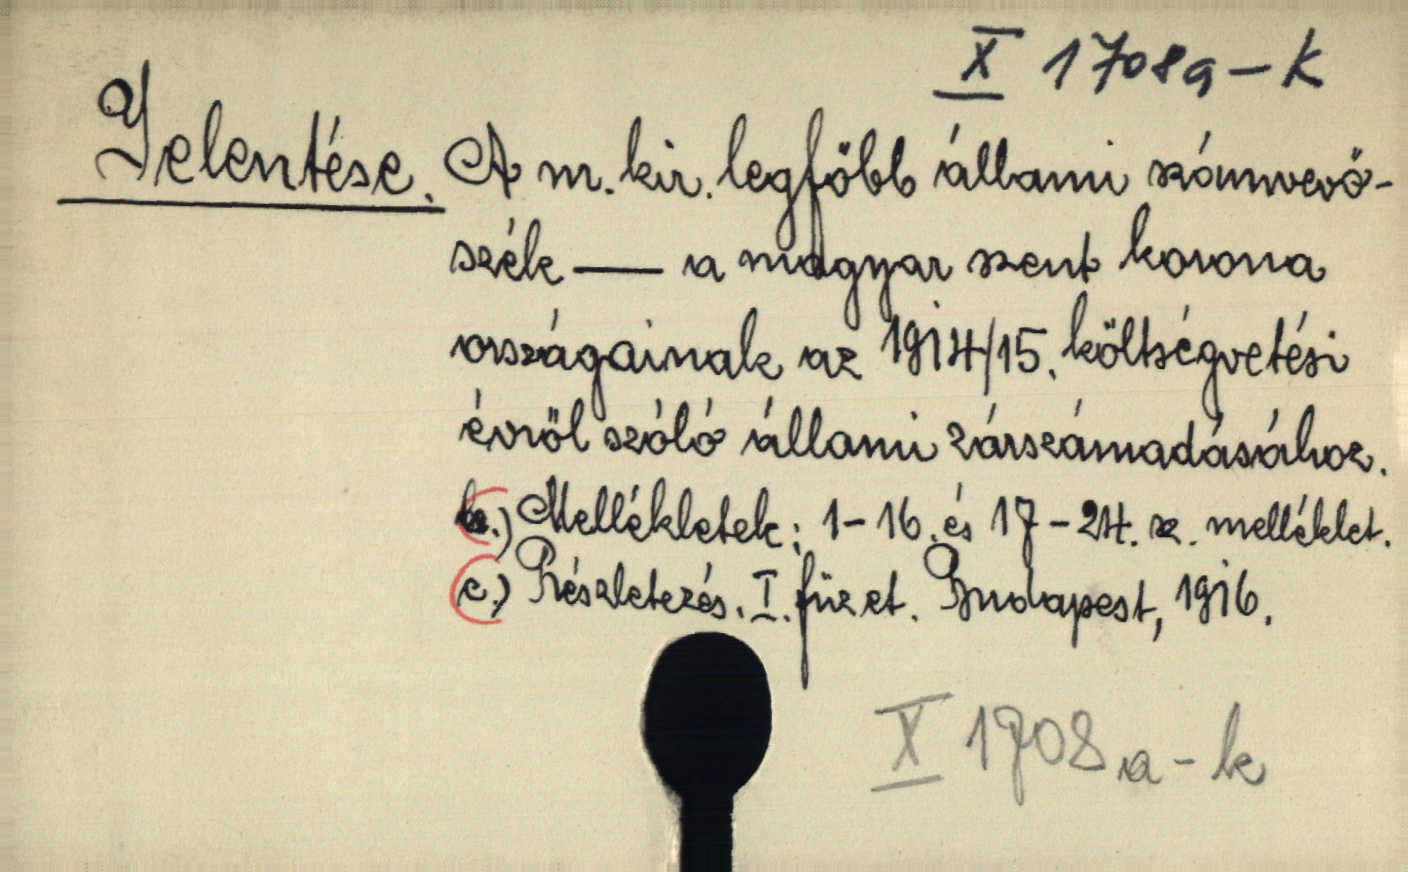 X 1708a-k
Jelentése. A m. kir. legfőbb állami számvevő-
szék — a magyar szent korona
országainak az 1914/15. költségvetési
évről szóló állami zárszámadásához.
b.) Mellékletek: 1-16. és 17-24. sz. melléklet.
c.) Részletezés. I. füzet. Budapest, 1916.
X 1708 a-k